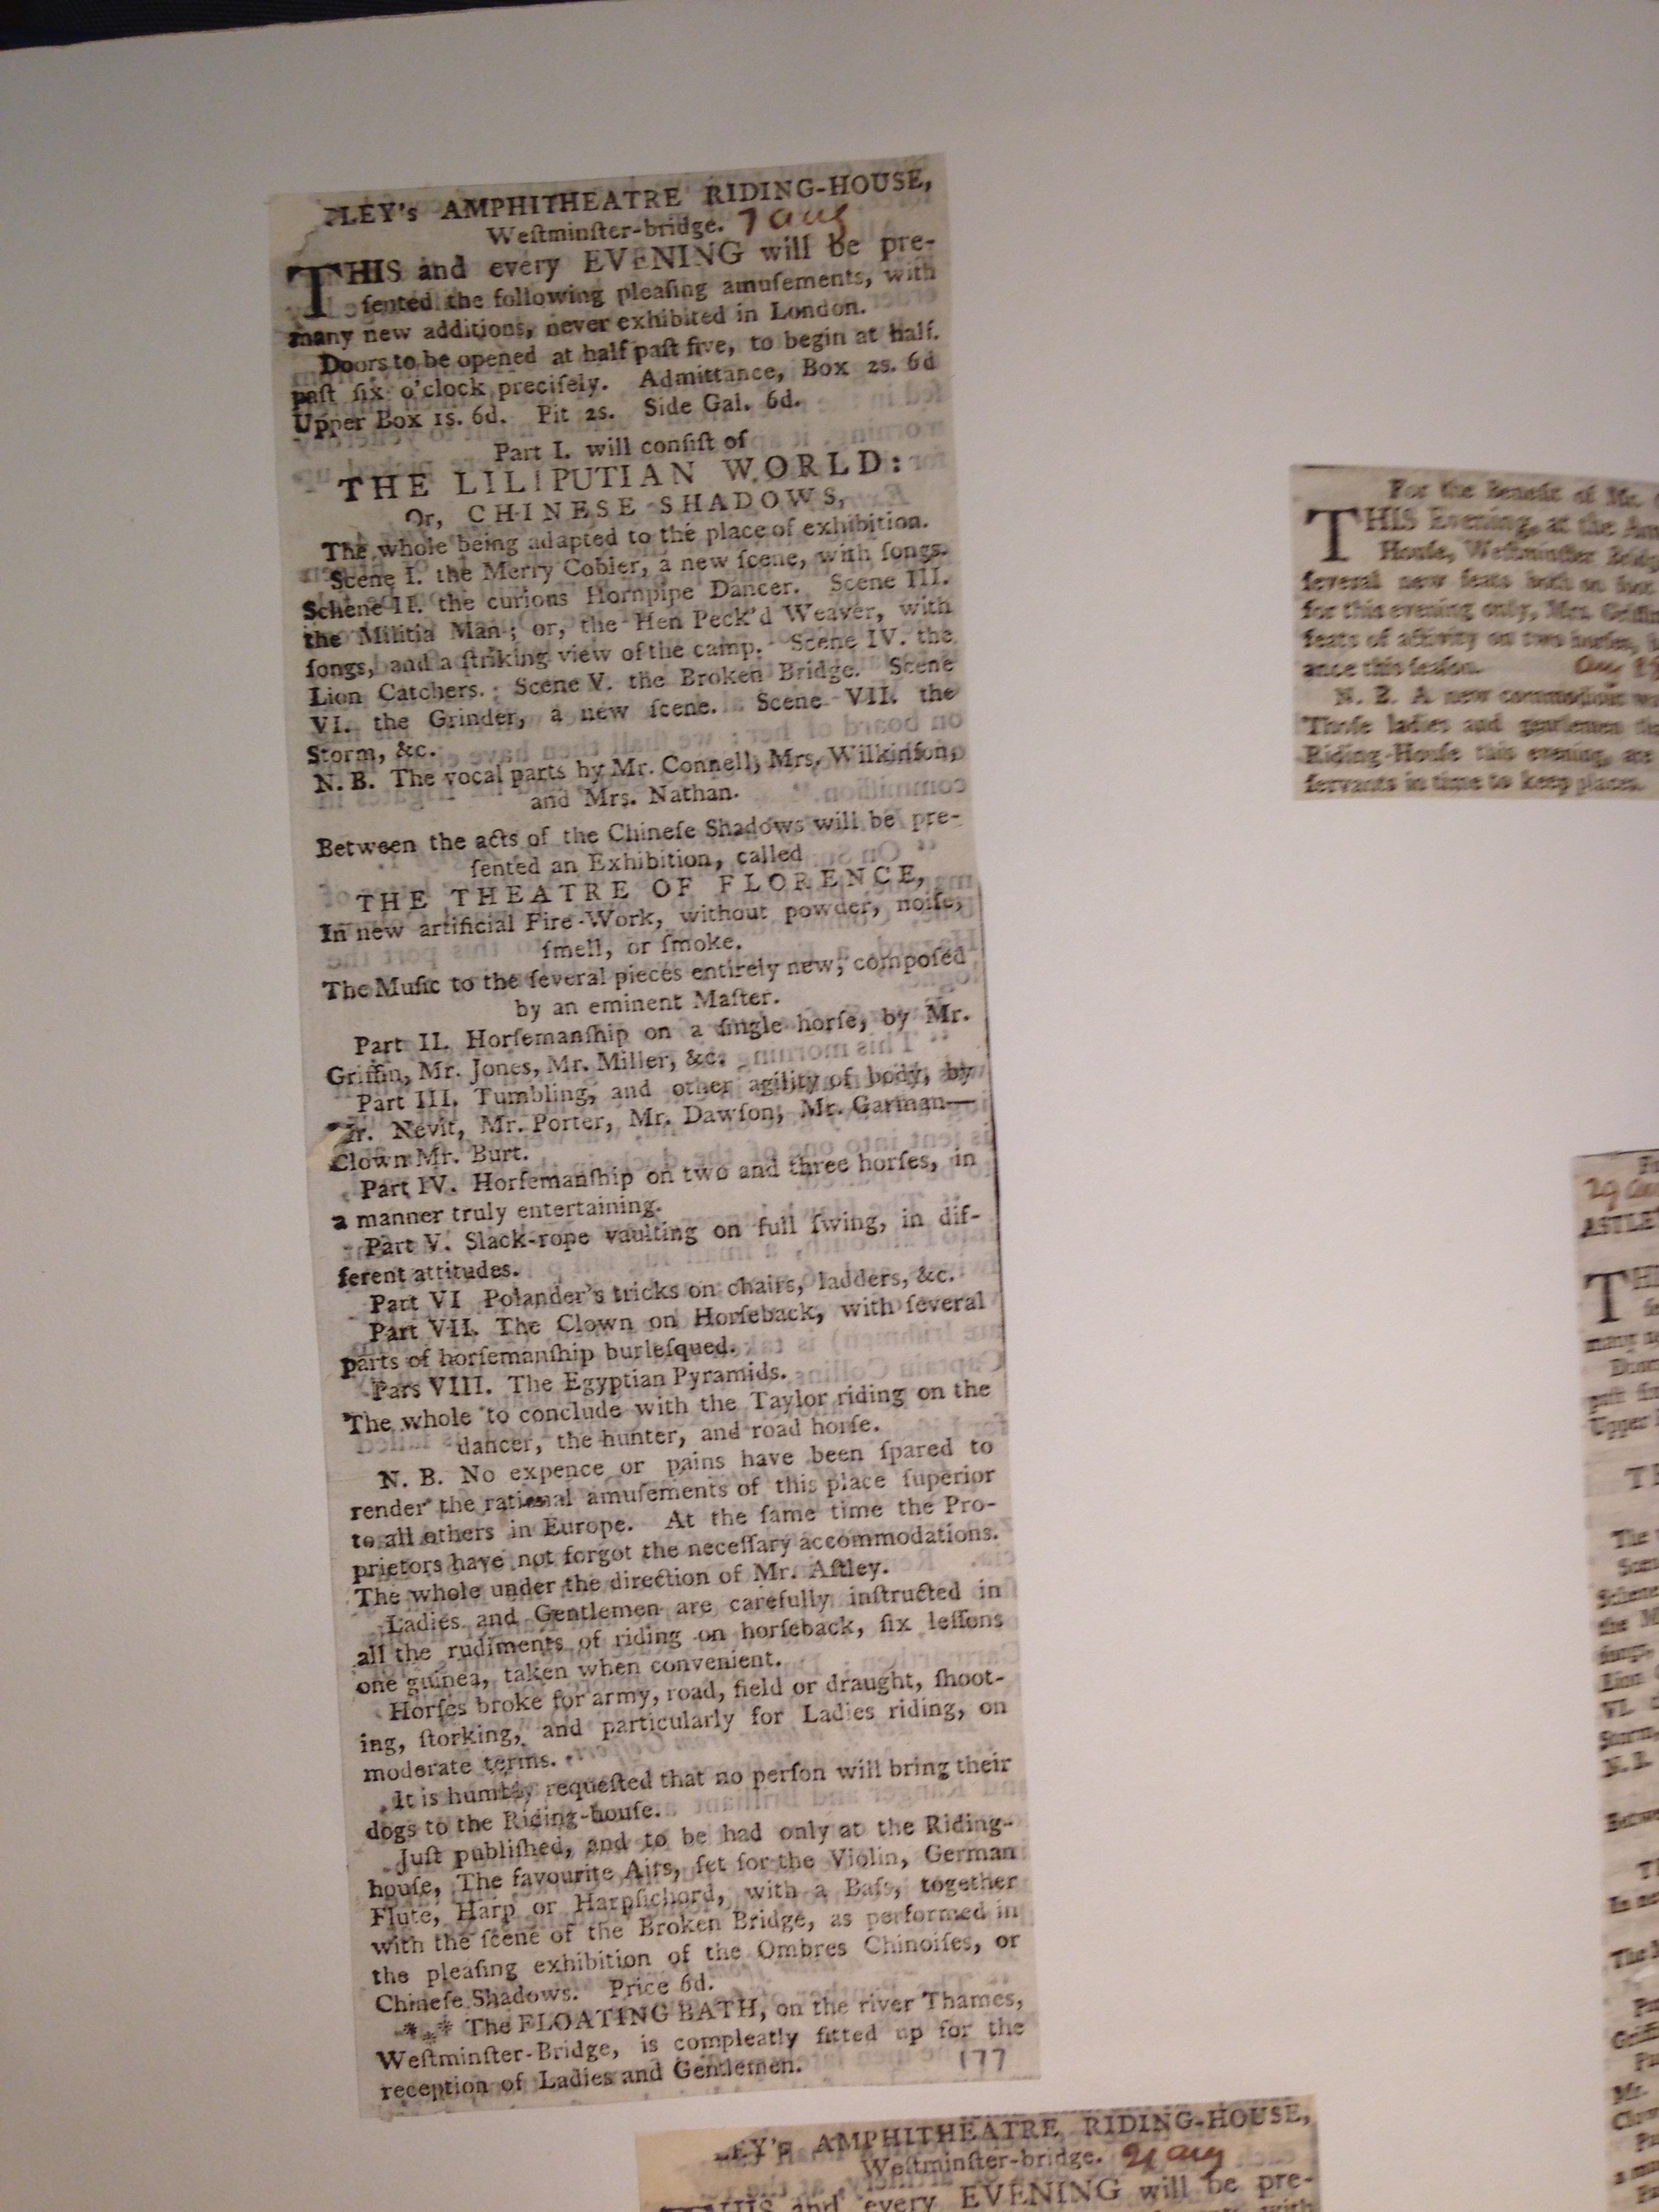 LEY's AMPHITHEATRE RIDING-HOUSE,
Weſtminſter-bridge. 7 aug
THIS and every EVENING will be pre-
ſented the following pleaſing amuſements, with
many new additions, never exhibited in London.
Doors to be opened at half paſt five, to begin at half.
paſt ſix o'clock preciſely. Admittance, Box 2s. 6d
Upper Box 1s. 6d. Pit 2s. Side Gal. 6d.
Part I. will conſiſt of
THE LILIPUTIAN WORLD:
Or, CHINESE SHADOWS,
The whole being adapted to the place of exhibition.
Scene I. the Merry Cobler, a new ſcene, with ſongs.
Schene II. the curious Hornpipe Dancer. Scene III.
the Militia Man; or, the Hen Peck'd Weaver, with
ſongs, and a ſtriking view of the camp. Scene IV. the
Lion Catchers. Scene V. the Broken Bridge. Scene
VI. the Grinder, a new ſcene. Scene VII. the
Storm, &c.
N. B. The vocal parts by Mr. Connell, Mrs. Wilkinſon,
and Mrs. Nathan.
Between the acts of the Chineſe Shadows will be pre-
ſented an Exhibition, called
THE THEATRE OF FLORENCE,
In new artificial Fire-Work, without powder, noiſe,
ſmell, or ſmoke.
The Muſic to the ſeveral pieces entirely new, compoſed
by an eminent Maſter.
Part II. Horſemanſhip on a ſingle horſe, by Mr.
Griffin, Mr. Jones, Mr. Miller, &c.
Part III. Tumbling, and other agility of body, by
Mr. Nevit, Mr. Porter, Mr. Dawſon, Mr. Garman—
Clown Mr. Burt.
Part IV. Horſemanſhip on two and three horſes, in
a manner truly entertaining.
Part V. Slack-rope vaulting on full ſwing, in dif-
ferent attitudes.
Part VI Polander's tricks on chairs, ladders, &c.
Part VII. The Clown on Horſeback, with ſeveral
parts of horſemanſhip burleſqued.
Pars VIII. The Egyptian Pyramids.
The whole to conclude with the Taylor riding on the
dancer, the hunter, and road horſe.
N. B. No expence or pains have been ſpared to
render the rational amuſements of this place ſuperior
to all others in Europe. At the ſame time the Pro-
prietors have not forgot the neceſſary accommodations.
The whole under the direction of Mr. Aſtley.
Ladies and Gentlemen are carefully inſtructed in
all the rudiments of riding on horſeback, ſix leſſons
one guinea, taken when convenient.
Horſes broke for army, road, field or draught, ſhoot-
ing, ſtorking, and particularly for Ladies riding, on
moderate terms.
It is humbly requeſted that no perſon will bring their
dogs to the Riding-houſe.
Juſt publiſhed, and to be had only at the Riding-
houſe, The favourite Airs, ſet for the Violin, German
Flute, Harp or Harpſichord, with a Baſs, together
with the ſcene of the Broken Bridge, as performed in
the pleaſing exhibition of the Ombres Chinoiſes, or
Chineſe Shadows. Price 6d.
*** The FLOATING BATH, on the river Thames,
Weſtminſter-Bridge, is compleatly fitted up for the
reception of Ladies and Gentlemen. 177
EY's AMPHITHEATRE RIDING-HOUSE,
Weſtminſter-bridge. 21 aug
THIS and every EVENING will be pre-
with
For the Benefit of Mr.
THIS Evening, at the Am
Houſe, Weſtminſter Bridg
ſeveral new feats both on foot
for this evening only, Mrs. Griffin
feats of activity on two horſes,
ance this ſeaſon.
N. B. A new commodious
Thoſe ladies and gentlemen
Riding-Houſe this evening, are
ſervants in time to keep places.
29
ASTLE
TH
many
Upper
The
Scene
Schene
the M
ſongs,
Lion
VI.
Storm,
N. B.
Betwe
The
Griffi
Mr.
Clow